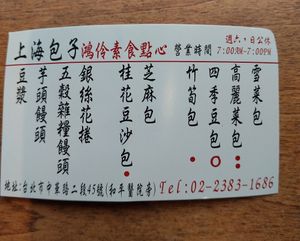 上海包子鴻伶素食點心 營業時間 週六、日公休
7:00AM-7:00PM
雪菜包
高麗菜包
四季豆包
竹筍包
芝麻包
桂花豆沙包
銀絲花捲
五穀雜糧饅頭
芋頭饅頭
豆漿
地址:台北市中華路二段45號(和平醫院旁) Tel:02-2383-1686